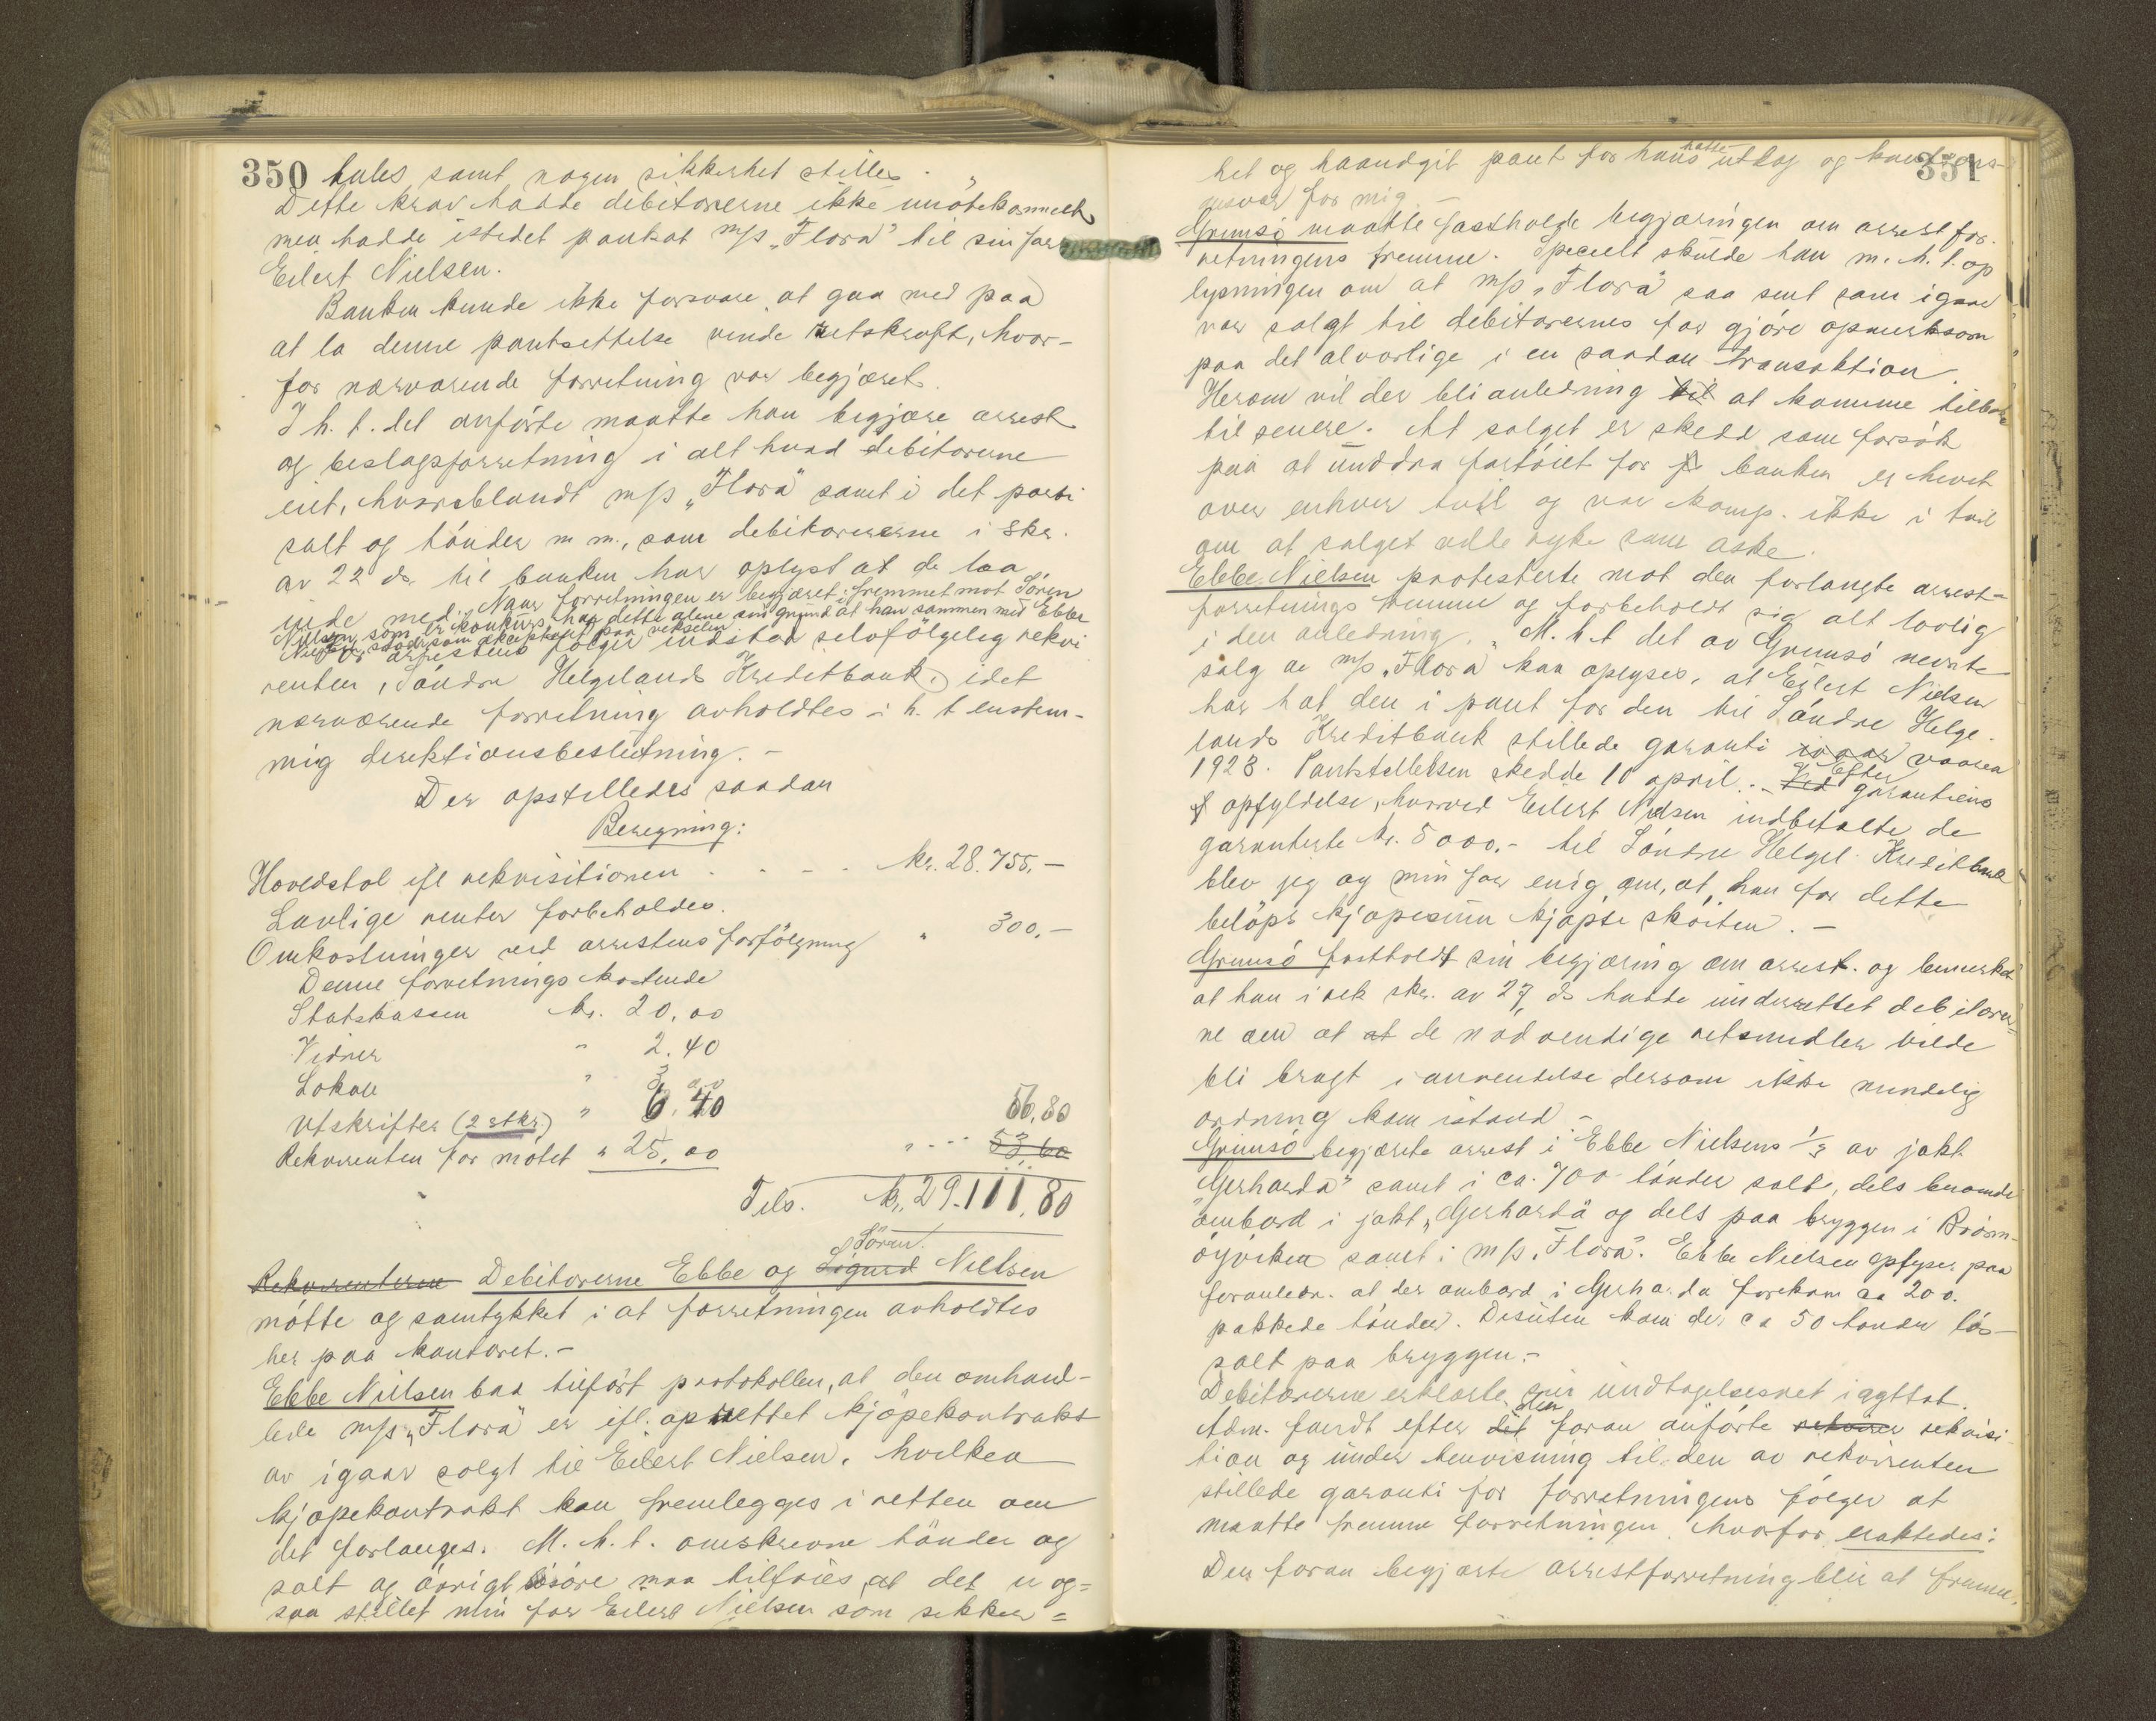 350 tales samt nogen sikkerhet stilles. "
Dette krav hadde debitorerne ikke imøtekommet
men hadde istedet pantsat m/s "Flora" til sin far
Eilert Nielsen.
Banken kunde ikke forsvare at gaa med paa
at la denne pantsettelse vinde retskraft, hvor-
for nærværende forretning var begjæret.
I h. t. det anførte maatte han begjære arrest
og beslagsforretning i alt hvad debitorerne
eiet, hvoriblandt m/s "Flora" samt i det parti
salt og tønder m m., som debitorerne i skr.
av 22 ds. til banken har oplyst at de laa
inde med. Naar forretningen er begjæret fremmet mot Søren
Nielsen, som er konkurs, har dette alene sin grund at han sammen med Ebbe
Nielsen staar som akceptant paa vekselen.
For arrestens følger indestaa selvfølgelig rekvi
renten, Søndre Helgelands Kreditbank, idet
nærværende forretning avholdtes i h. t enstem-
mig direktionsbeslutning. -
Der opstilledes saadan
Beregning:
Hovedstol ifl rekvisitionen . . - - . kr. 28.755,-
Lovlige renter forbeholdes.
Omkostninger ved arrestens forfølgning " 300,-
Denne forretnings kostende
Statskassen kr. 20,00
Vidner " 2.40
Lokale " 3,00
Utskrifter (2 stkr.) " 6.40 56,80
Rekvirenten for møtet " 25,00 " - - - 53,60
Tils. kr. 29.111,80
Søren
Rekvirenterne Debitorerne Ebbe og Sigurd Nielsen
møtte og samtykket i at forretningen avholdtes
her paa kontoret. -
Ebbe Nielsen baa tilført protokollen, at den omhand-
lede m/s "Flora" er ifl. oprettet kjøpekontrakt
av igaar solgt til Eilert Nielsen, hvilken
kjøpekontrakt kan fremlegges i retten om
det forlanges. M. h. t. omskrevne tønder og
salt og øvrigt løsøre maa tilføies, at det er og=
saa stillet min far Eilert Nielsen som sikker=
351
het og haandgit pant for hans hatte utlæg og
ansvar for mig. -
Grimsø maatte fastholde begjæringen om arrestfor-
retningens fremme. Specielt skulde han m. h. t. op
lysningen om at m/s "Flora" saa sent som igaar
var solgt til debitorernes far gjøre opmerksom
paa det alvorlige i en saadan transaktion.
Herom vil der bli anledning til at komme tilbake
til senere. At salget er skedd som forsøk
paa at unddra fartøiet for banken er hevet
over enhver tvil og var komp. ikke i tvil
om at salget vilde ryke som aske.
Ebbe Nielsen protesterte mot den forlangte arrest-
forretnings fremme og forbeholdt sig alt lovlig
i den anledning. M. h. t det av Grimsø nevnte
salg av m/s "Flora" kan oplyses, at Eilert Nielsen
har hat den i pant for den til Søndre Helge-
lands Kreditbank stillede garanti ivaar vaaren
1923. Pantstillelsen skedde 10 april. - Ved Efter garantiens
opfyldelse, hvorved Eilert Nielsen indbetalte de
garanterte kr. 5000.- til Søndre Helgel. Kreditbank
blev jeg og min far enig om, at han for dette
beløps kjøpesum kjøpte skøiten. -
Grimsø fastholdt sin begjæring om arrest. og bemerket
at han i rek skr. av 27 ds hatte underrettet debitorer=
ne om at at de nødvendige retsmidler vilde
bli bragt i anvendelse dersom ikke mindelig
ordning kom istand -
Grimsø begjærte arrest i Ebbe Nielsens 1/3 av jakt
"Gerharda" samt i ca. 700 tønder salt, dels beroende
ombord i jakt "Gerharda" og dels paa bryggen i Brønn-
øyviken samt i m/s "Flora". Ebbe Nielsen oplyser paa
foranledn. at der ombord i Gerharda forekom ca 200.
pakkede tønder. Desuten kom der ca 50 tønder løs-
salt paa bryggen. -
Debitorerne erklærte sin undtagelsesret iagttat.
Adm. fandt efter det den foran anførte rekvirer rekvisi-
tion og under henvisning til den av rekvirenten
stillede garanti for forretningens følger at
maatte fremme forretningen, hvorfor eraktedes:
Den foran begjærte arrestforretning blir at fremme.